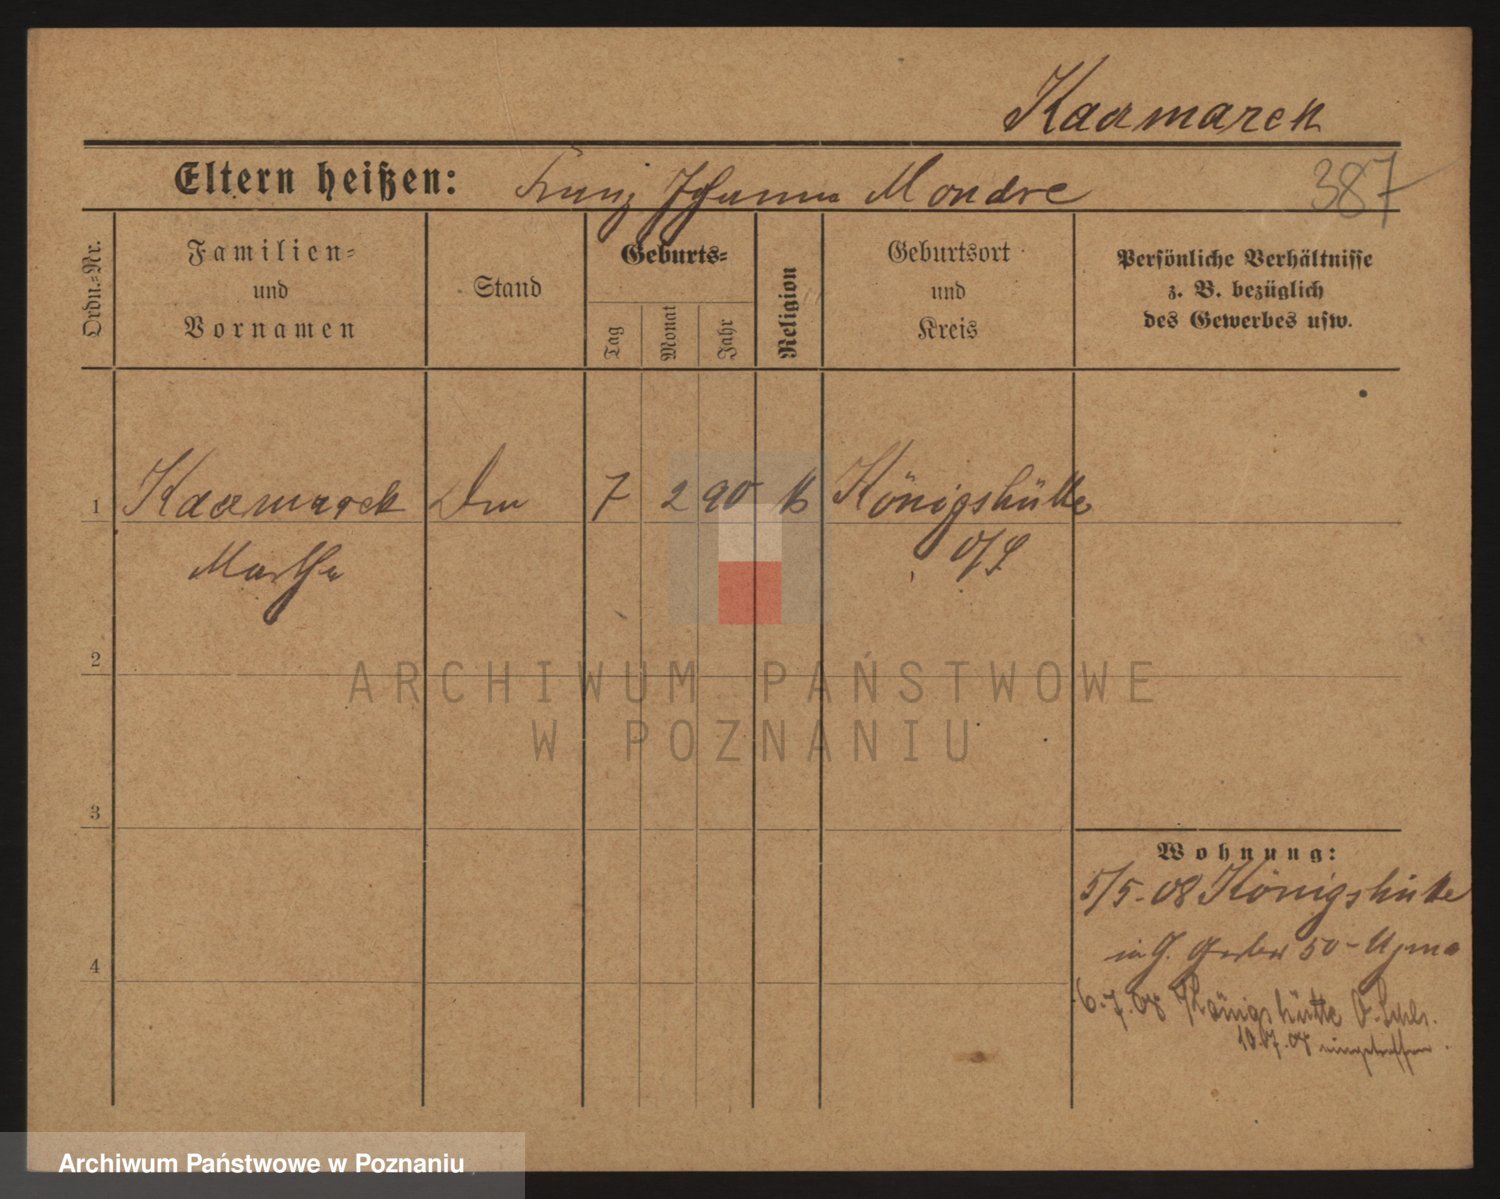 Kaczmarek
Eltern heißen: Franz Johanna Mondre
387
Ordn.-Nr.
Familien-
und
Vornamen
Stand
Geburts-
Tag
Monat
Jahr
Religion
Geburtsort
und
Kreis
Persönliche Verhältnisse
z. B. bezüglich
des Gewerbes usw.
1 Kaczmarek 7 2 90 k Königshütte
Martha O/S
2
ARCHIWUM PAŃSTWOWE
W POZNANIU
3
Wohnung:
5/5-08 Königshütte
50-
4
6.7.08 Königshütte O.Schls.
10.7.08 eingetroffen.
Archiwum Państwowe w Poznaniu